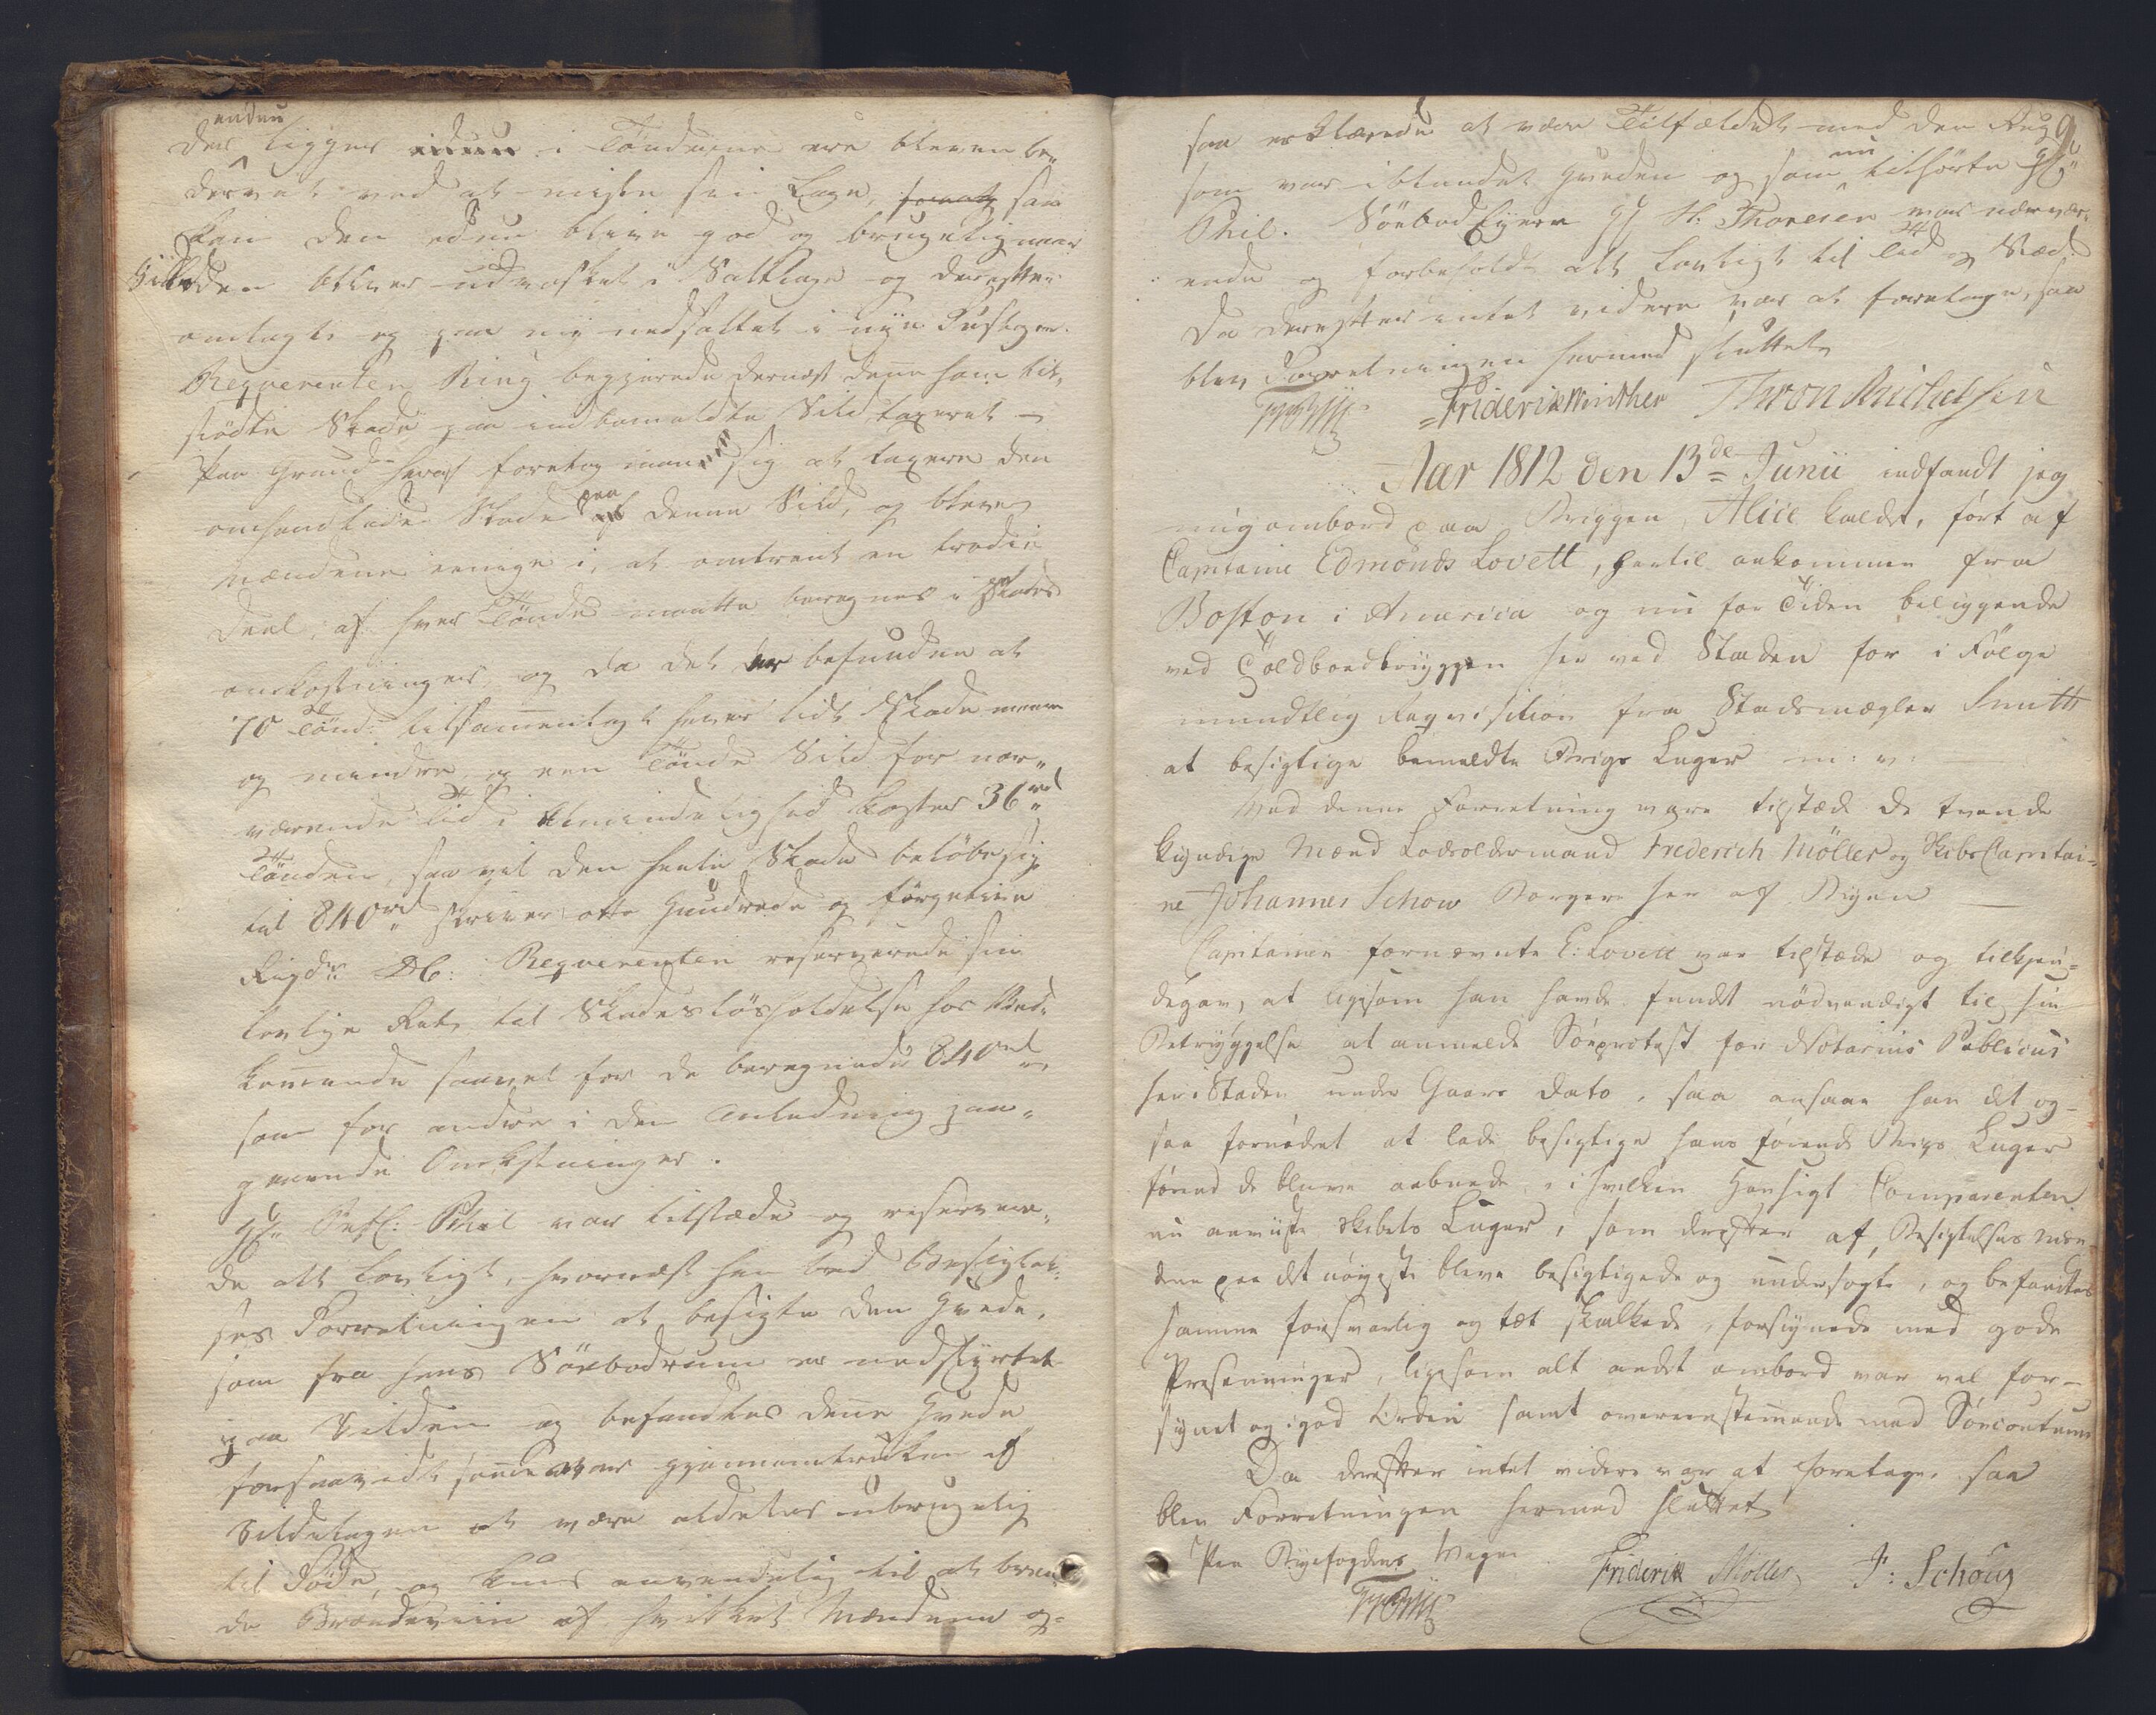 der endnu ligger i Tönderne ere bleven be„
dervet ved at miste sin Lage, saa
kan den blive god og brugelig naar
Silden bliver udvasket i Saltlage og derefter
omlagt og paa ny nedsaltet i nye Fustager.
Reqverenten Ring begjærede dernæst denne ham til„
stödte Skade paa indbemeldte Sild taxeret —
Paa Grund heraf foretog man sig at taxere den
omhandlede Skade paa denne Sild, og bleve
Mændene eenige i, at omtrent en tredie
Deel af hver Tönde maatte beregnes i Skades
omkostninger, og da det er befunden at
70 Tönd: tilsammentagt haver lidt Skade meere
og mindre, og een Tönde Sild for nær„
værende Tid i Almindelighed koster 36 rd
Tönden, saa vil den heele Skade belöbe sig
til 840 rd skriver otte Hundrede og förgetive
Rigdr DC: Reqverenten reserverede sin
lovlige Ret til Skadeslösholdelse hos Ved„
kommende saavel for de beregnede 840 rd
som for andre i den Anledning paa„
gaaende Omkostninger.
Hr Phil var tilstæde og reserveere„
de alt lovligt, hvornæst han bad Besigtel„
ses Forretningen at besigte den Hvede,
som fra hans Söebodrum er nedstyrtet
paa Silden og befandtes denne Hvede
forsaavidt samme var gjennemtrukken af
Sildelagen at være aldeles ubrugelig
til Föde, og kuns anvendelig til at bræn„
de Brændeviin af hvilket Mændene og„
saa erklærede at være Tilfældet med den Rug 9
som var iblandet Hveden og som nu tilhörte Hr
Phil. Söebod Eyeren Hr H. Thoresen var nærvær„
ende og forbeholdt alt lovligt til Tid og Stæd.
Da derefter intet videre var at foretage, saa
blev Forretningen hermed sluttet
Friderik Winther Thron Michelsen
Aar 1812 den 13de Junii indfandt jeg
mig ombord paa Briggen, Alice kaldet, fört af
Capitaine Edmonds Lovett, hertil ankommen fra
Boston i America og nu for Tiden beliggende
ved Toldboedbryggen her ved Staden for i Fölge
mundtlig Reqvisition fra Stadsmægler Smith
at besigtige bemeldte Brigs Luger m: v:
Ved denne Forretning vare tilstæde de tvende
kyndige Mænd Lodsoldermand Frederich Möller og Skibs Capitai=
ne Johannes Schow Borgere her af Byen —
Capitainen fornævnte E: Lovett var tilstæde og tilkjen=
degav, at ligesom han havde fundt nödvendigt til sin
Betryggelse at anmelde Söeprotest for Notarius Publicus
her i Staden under Gaars Dato, saa ansaae han det og=
saa fornödet at lade besigtige hans förende Brigs Luger
förend de bleve aabnede, i hvilken Hensigt Comparenten
nu anviiste Skibets Luger, som derefter af Besigtelses Mæn
dene paa det nöyeste bleve besigtigede og undersögte, og befandtes
samme forsvarlig og tæt skalkede, forsynede med gode
Presenninger, ligesom alt andet ombord var vel for=
synet og i god Orden samt overeenstemmende med Söecoutume
Da derefter intet videre var at foretage, saa
blev Forretningen hermed sluttet
Paa Byefogdens Vegne
Friderik Möller J: Schouw